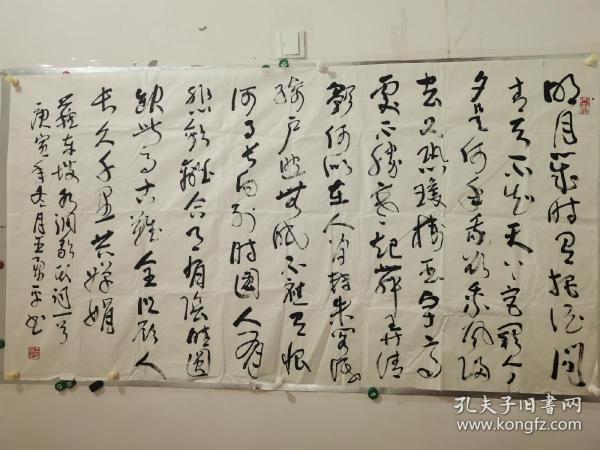 明月几时有把酒问
青天不知天上宫阙今
夕是何年我欲乘风归
去又恐琼楼玉宇高
处不胜寒起舞弄清
影何似在人间转朱阁低
绮户照无眠不应有恨
何事长向别时圆人有
悲欢离合月有阴晴圆
缺此事古难全但愿人
长久千里共婵娟
苏东坡水调歌头词一首
庚寅年冬月王勇平书
孔夫子旧书网
www.kongfz.com